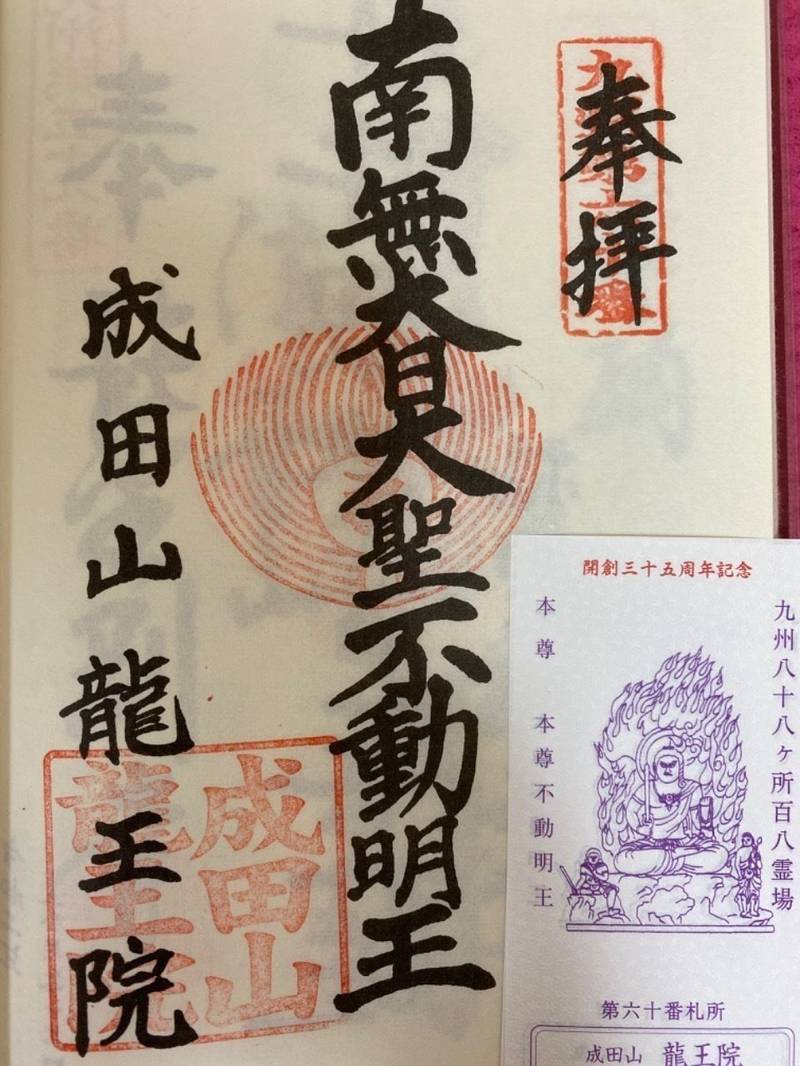 奉拝
南無大日大聖不動明王
成田山龍王院
成田山
龍王院
開創三十五周年記念
九州八十八ヶ所百八霊場
本尊 本尊不動明王
第六十番札所
成田山 龍王院